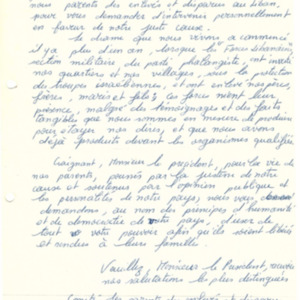 nous parents des enlevés et disparus au Liban,
pour vous demander d'intervenir personnellement
en faveur de notre juste cause.
Le drame que nous vivons a commencé
il y a plus d'un an, lorsque les "Forces Libanaises"
section militaire du parti phalangiste, ont
nos quartiers et nos villages, sous la protection
des troupes israéliennes, et ont enlevé nos pères,
frères, maris et fils. Les forces nient leur
présence, malgré des témoignages et des faits
tangibles que nous sommes en mesure de produire
pour étayer nos dires, et que nous avons
déjà produits devant les organismes qualifiés.
Craignant, Monsieur le président, pour la vie de
nos parents, poussés par la justesse de notre
cause et soutenus par l'opinion publique et
les personnalités de notre pays, nous vous
demandons, au nom des principes d'humanité
et de démocratie de votre pays, d'user de
tout votre pouvoir afin qu'ils soient libérés
et rendus à leurs familles.
Veuillez Monsieur le Président, recevoir
nos salutations les plus distinguées
Comité des parents des enlevés et disparus